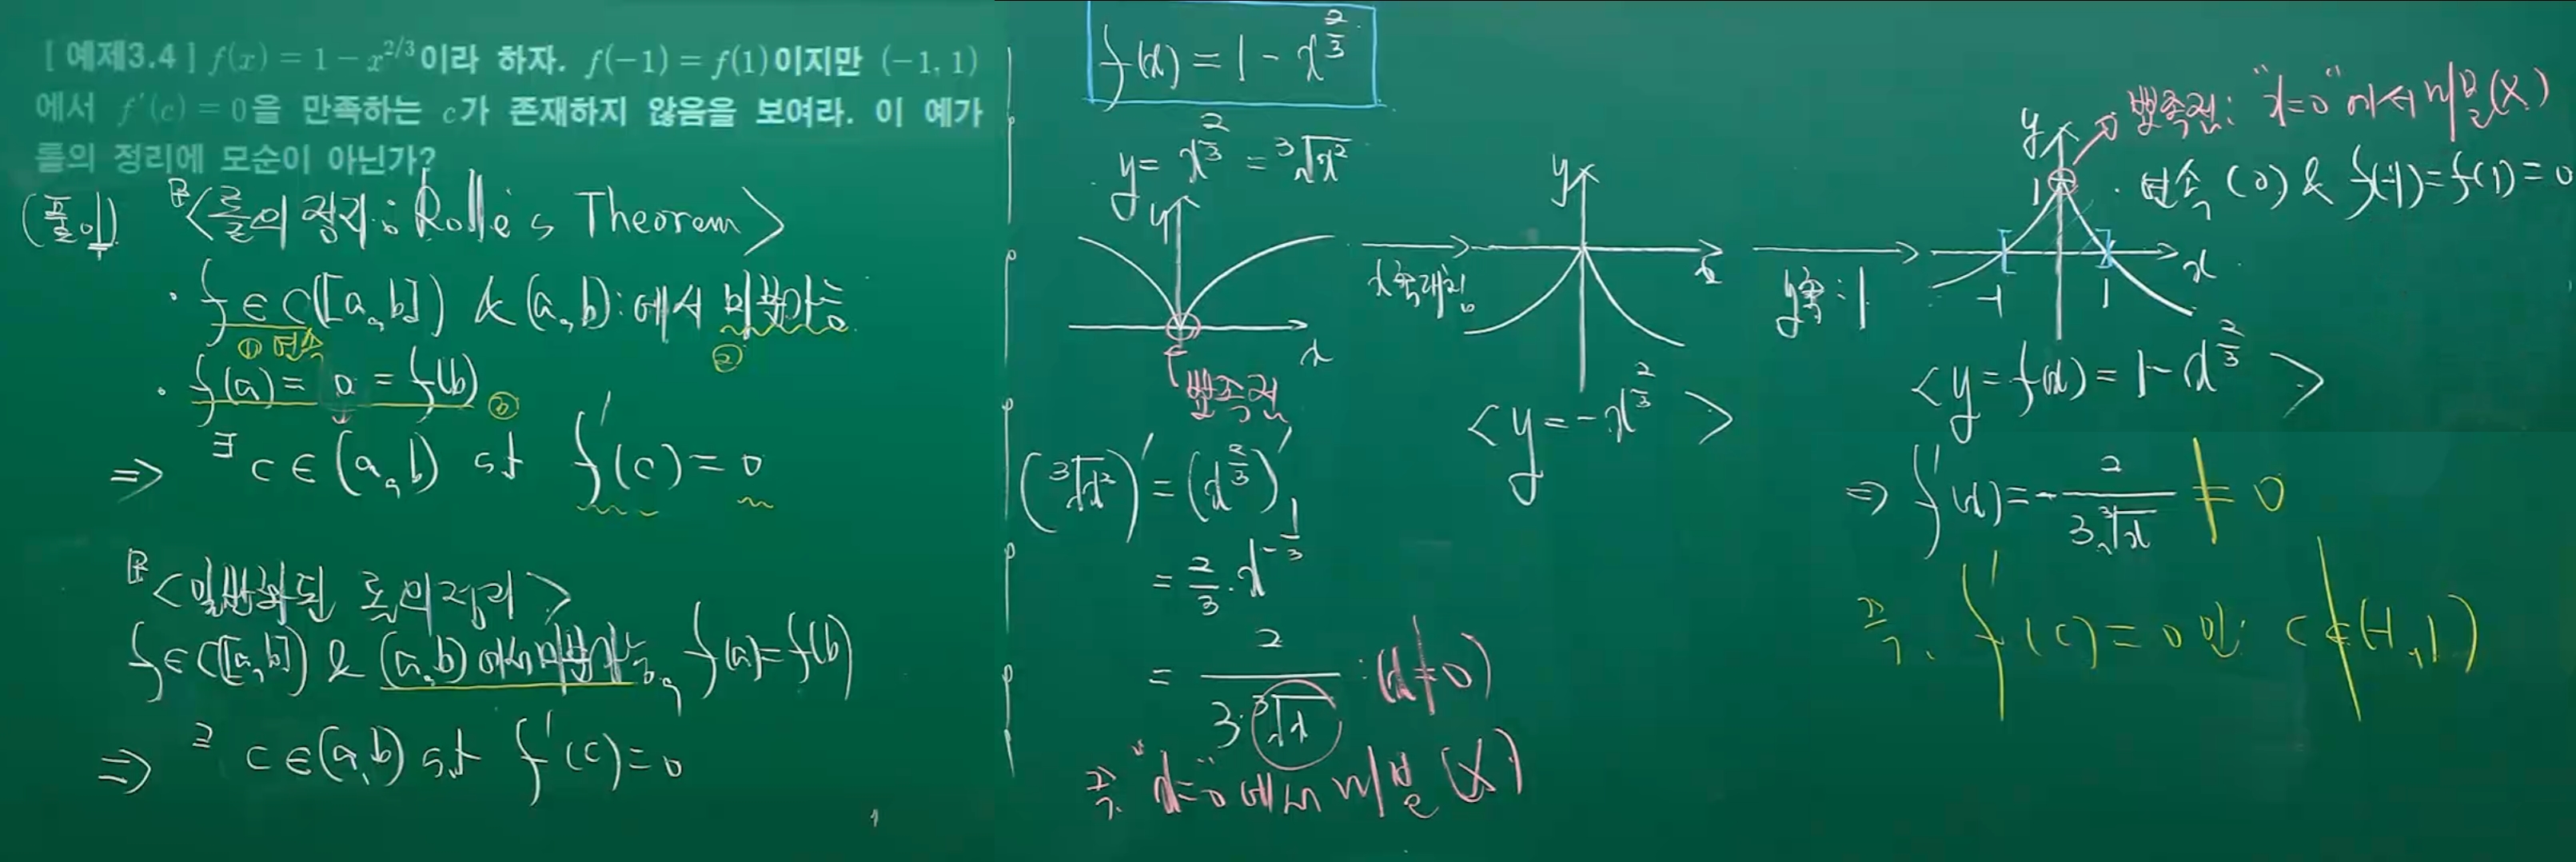 [ 예제3.4 ] f(x) = 1 - x^{2/3}이라 하자. f(-1) = f(1)이지만 (-1, 1)
에서 f'(c) = 0을 만족하는 c가 존재하지 않음을 보여라. 이 예가
롤의 정리에 모순이 아닌가?
(풀이) <롤의 정리 : Rolle's Theorem>
· f ∈ C([a, b]) & (a, b) : 에서 미분가능
① 연속 ②
· f(a) = 0 = f(b) ③
⇒ ∃ c ∈ (a, b) s.t f'(c) = 0
<일반화된 롤의 정리>
f ∈ C([a, b]) & (a, b) 에서 미분가능, f(a) = f(b)
⇒ ∃ c ∈ (a, b) s.t f'(c) = 0
f(x) = 1 - x^{2/3}
y = x^{2/3} = ∛x²
y
x
뾰족점
(∛x²)' = (x^{2/3})'
= 2/3 · x^{-1/3}
= 2/(3·∛x) : (x ≠ 0)
즉, "x=0"에서 미분(X)
x축대칭
y
x
<y = -x^{2/3}>
y축 : 1
뾰족점: "x=0"에서 미분(X)
· 연속 (O) & f(-1) = f(1) = 0
y
1
-1 1 x
<y = f(x) = 1 - x^{2/3}>
⇒ f'(x) = - 2/(3∛x) ≠ 0
즉, f'(c) = 0 인 c ∉ (-1, 1)